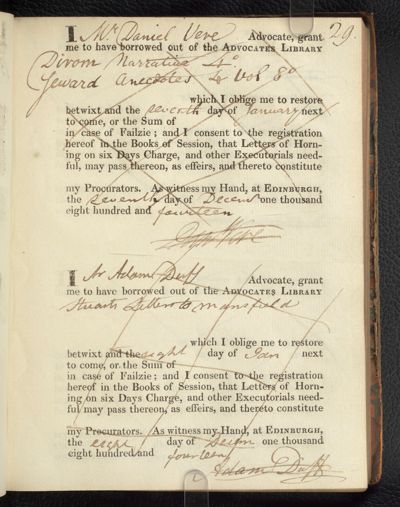 29.
I Mr Daniel Vere Advocate, grant
me to have borrowed out of the ADVOCATES LIBRARY
Dirom Narrative 4o.
Seward Anecdotes 4 Vol 8o
which I oblige me to restore
betwixt and the seventh day of January next
to come, or the Sum of
in case of Failzie; and I consent to the registration
hereof in the Books of Session, that Letters of Horn-
ing on six Days Charge, and other Executorials need-
ful, may pass thereon, as effeirs, and thereto constitute
my Procurators. As witness my Hand, at EDINBURGH,
the seventh day of Decemr one thousand
eight hundred and fourteen
Vere
I Mr Adam Duff Advocate, grant
me to have borrowed out of the ADVOCATES LIBRARY
Stuarts Letters to Mansfield
which I oblige me to restore
betwixt and the eight day of Jan next
to come, or the Sum of
in case of Failzie; and I consent to the registration
hereof in the Books of Session, that Letters of Horn-
ing on six Days Charge, and other Executorials need-
ful may pass thereon, as effeirs, and thereto constitute
my Procurators. As witness my Hand, at EDINBURGH,
the eight day of Decem one thousand
eight hundred and fourteen
Adam Duff